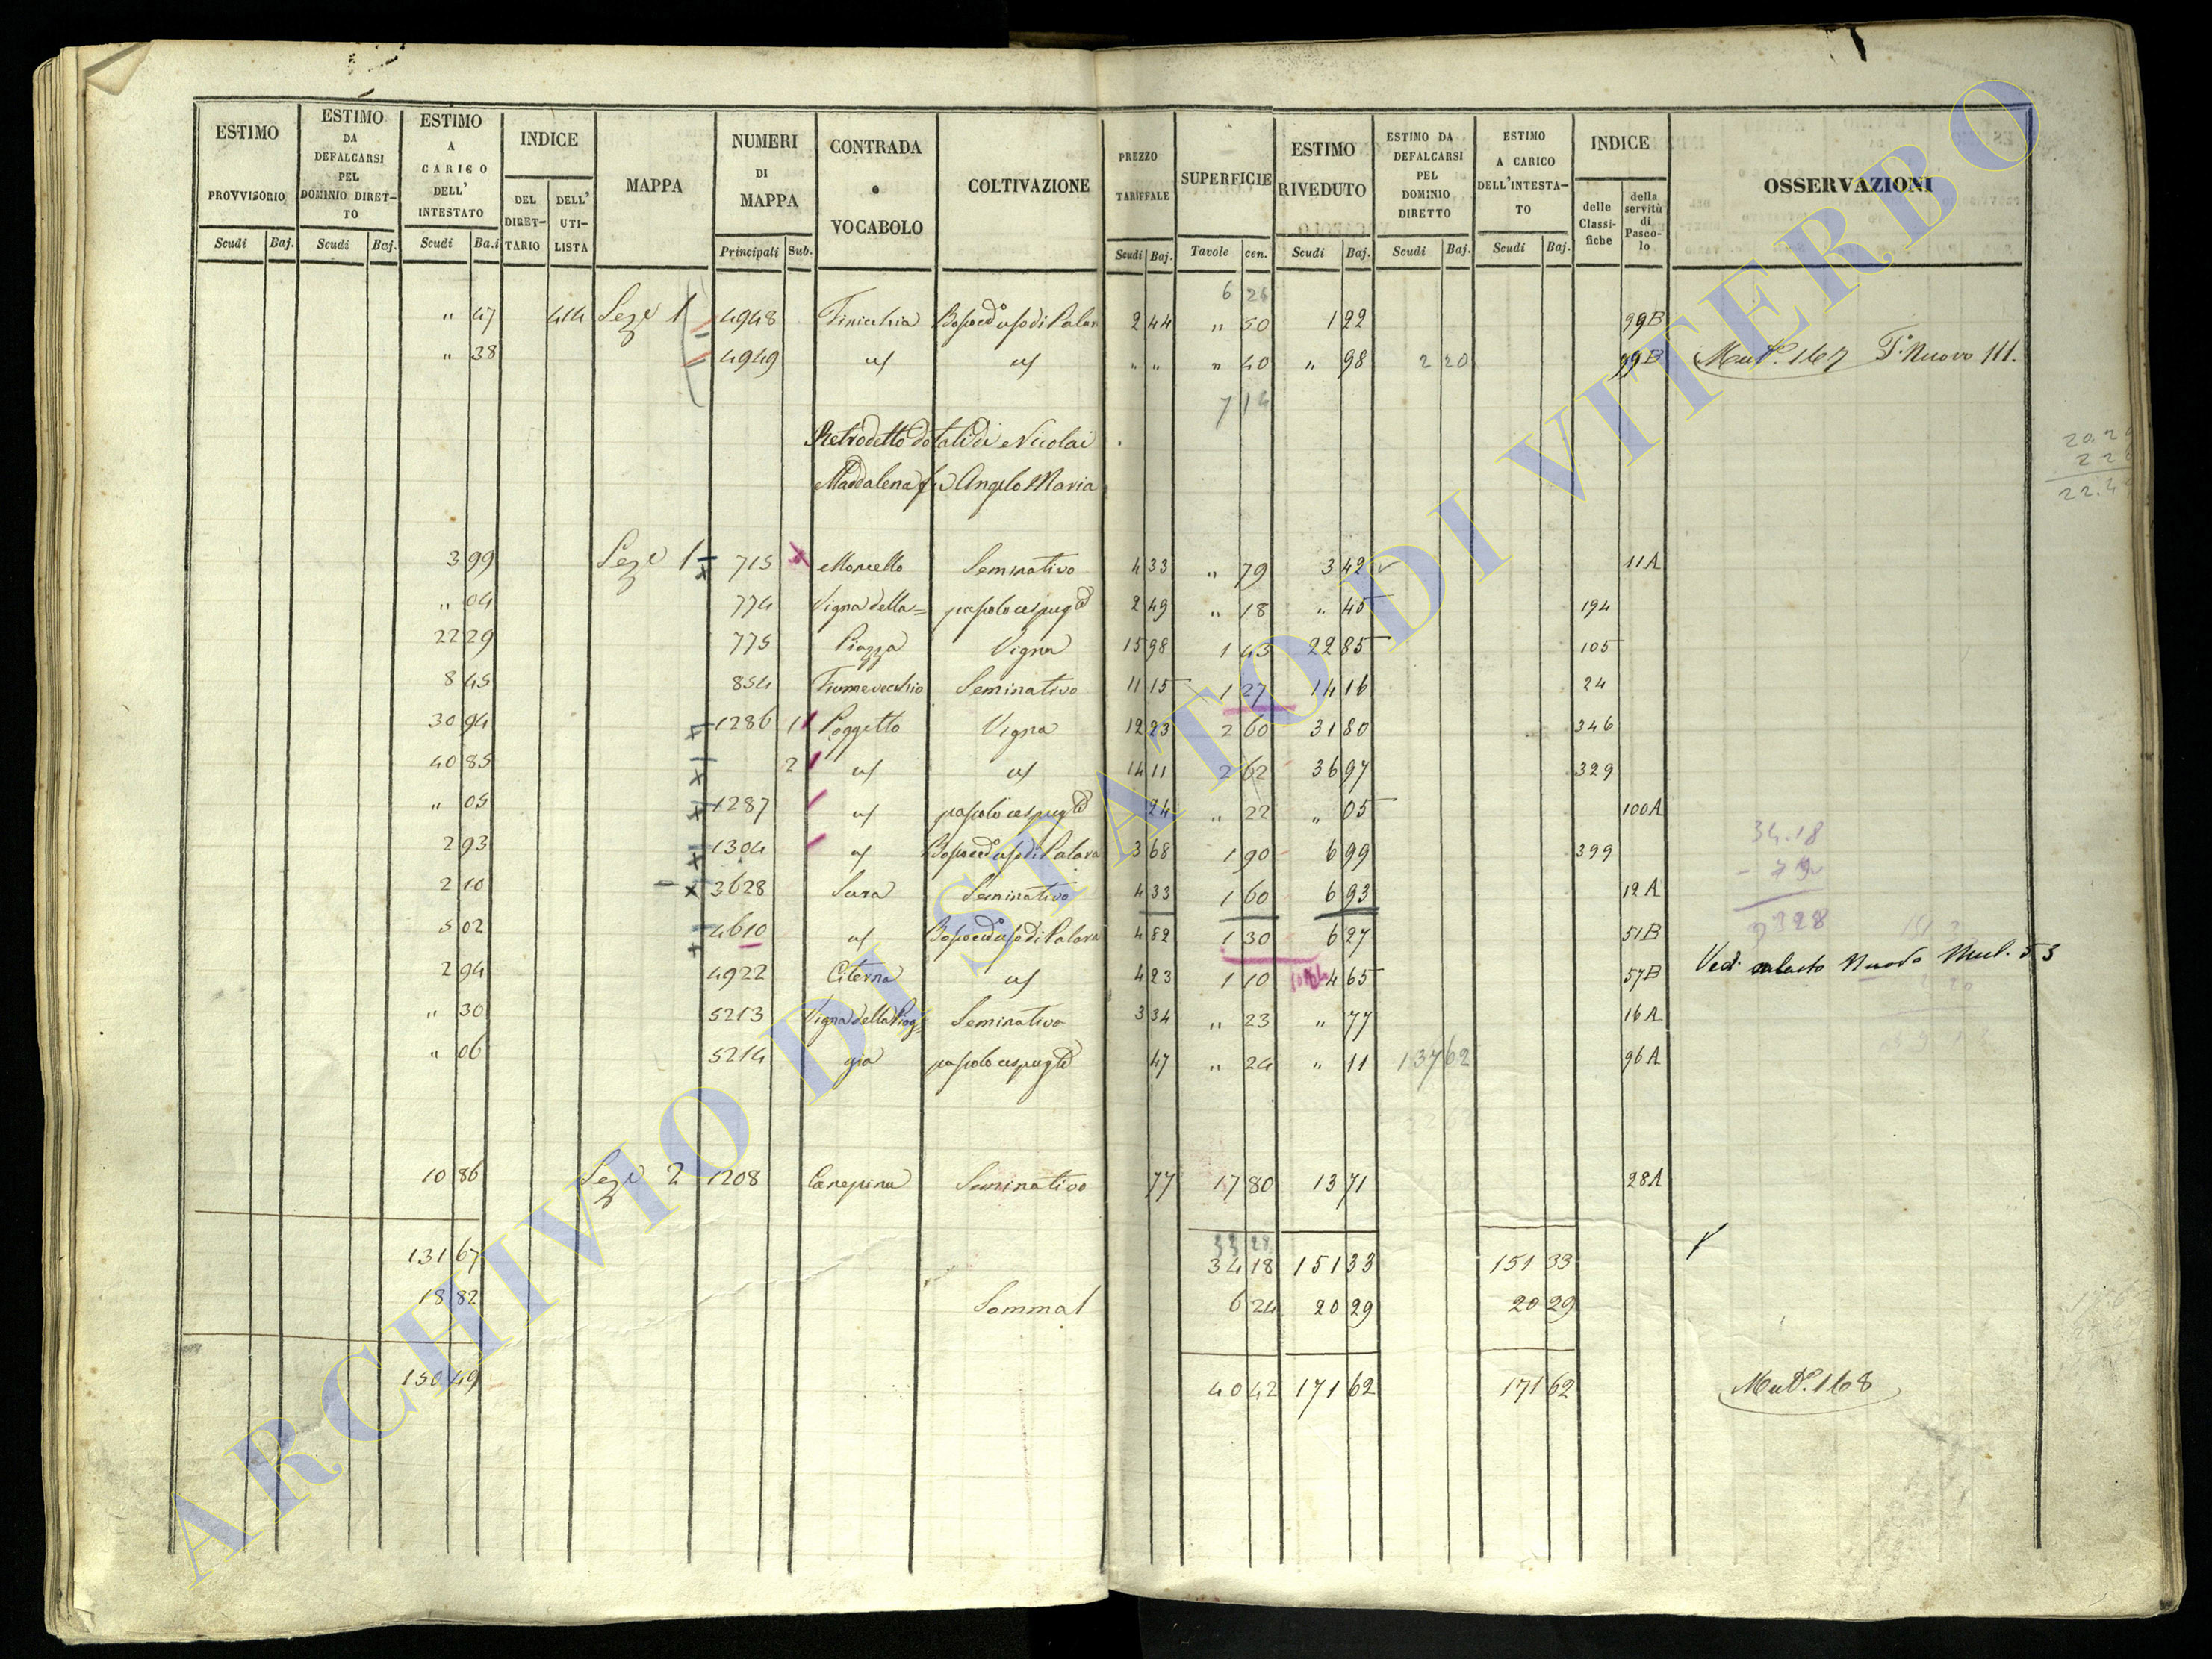 ESTIMO PROVVISORIO
ESTIMO DA DEFALCARSI PEL DOMINIO DIRETTO
ESTIMO A CARICO DELL' INTESTATO
INDICE
DEL DIRETTARIO
DELL' UTILISTA
MAPPA
NUMERI DI MAPPA
CONTRADA o VOCABOLO
COLTIVAZIONE
PREZZO TARIFFALE
SUPERFICIE
ESTIMO RIVEDUTO
ESTIMO DA DEFALCARSI PEL DOMINIO DIRETTO
ESTIMO A CARICO DELL'INTESTATO
INDICE
delle Classifiche
della servitù di Pascolo
OSSERVAZIONI
Scudi Baj. Scudi Baj. Scudi Ba.i Principali Sub. Scudi Baj. Tavole cen. Scudi Baj. Scudi Baj. Scudi Baj.
6 24
" 47 414 Seze 1 4948 Finicchia 2 44 " 50 1 22 99B
" 38 4949 " " " 40 " 98 2 20 99B Mut. 167 T. Nuovo 111.
7 14
Retrodetto dotali di Nicolai
Maddalena fu Angelo Maria
20.29
22.4
3 99 Seze 1 715 Morcella Seminativo 4 33 " 79 3 42 11A
" 04 774 Vigna della= 2 49 " 18 " 45 194
22 29 775 Piazza Vigna 15 98 1 43 22 85 105
8 45 854 Fiumevecchio Seminativo 11 15 1 27 14 16 24
30 94 1286 1 Poggetto Vigna 12 23 2 60 31 80 346
40 85 2 14 11 2 62 36 97 329
" 05 1287 24 " 22 " 05 100A
2 93 1304 3 68 1 90 6 99 399
34.18
2 10 3628 Sura Seminativo 4 33 1 60 6 93 12A
5 02 4610 4 82 1 30 6 27 51B
2 94 4922 Citerna 4 23 1 10 4 65 57B Vedi Nuovo Mut. 53
" 30 5213 Vigna della Piog= Seminativo 3 34 " 23 " 77 16A
" 06 5214 gia 47 " 24 " 11 137 62 96A
10 86 Seze 2 1208 Canepina Seminativo 77 17 80 13 71 28A
33 28
131 67 34 18 151 33 151 33
18 82 Somma 1 6 24 20 29 20 29
150 49 40 42 171 62 171 62 Mut. 168
ARCHIVIO DI STATO DI VITERBO